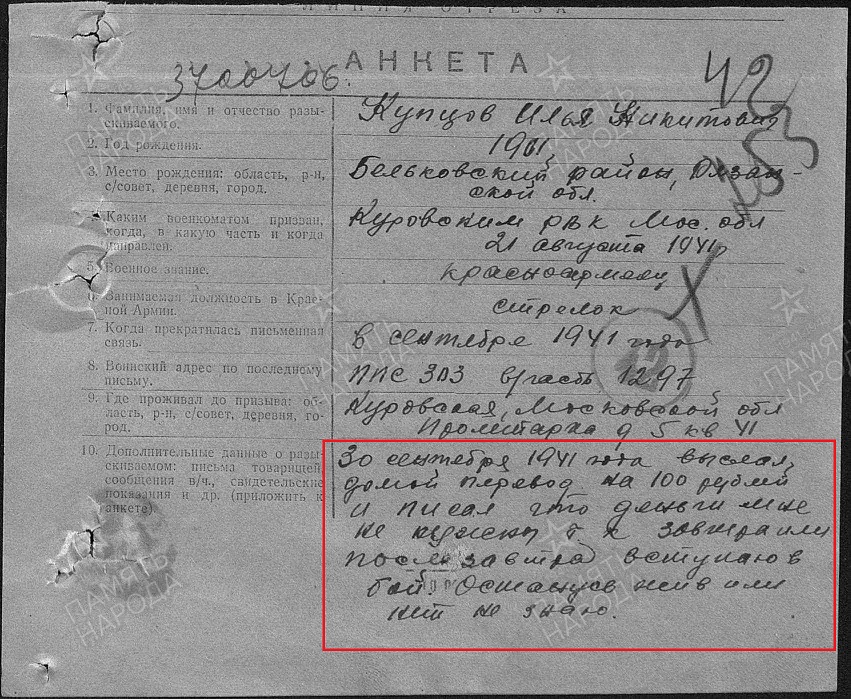 ЛИНИЯ ОТРЕЗА
АНКЕТА
3700706.
42
1. Фамилия, имя и отчество разы-
скиваемого.
Купцов Илья Никитович
2. Год рождения.
1901
3. Место рождения: область, р-н,
с/совет, деревня, город.
Бельковский район, Рязан-
ской обл.
4. Каким военкоматом призван,
когда, в какую часть и когда
направлен.
Куровским РВК Мос. обл
21 августа 1941г
5. Военное звание.
красноармеец
6. Занимаемая должность в Крас-
ной Армии.
стрелок
7. Когда прекратилась письменная
связь.
в сентябре 1941 года
8. Воинский адрес по последнему
письму.
ППС 303 в/часть 1297
9. Где проживал до призыва: об-
ласть, р-н, с/совет, деревня, го-
род.
Куровская, Московской обл
д 5 кв 41
10. Дополнительные данные о разы-
скиваемом: письма товарищей,
сообщения в/ч., свидетельские
показания и др. (приложить к
анкете)
30 сентября 1941 года выслал
домой перевод на 100 рублей
и писал что деньги мне
не нужны т к завтра или
после завтра вступаю в
бой Останусь жив или
нет не знаю.
12
ПАМЯТЬ
НАРОДА